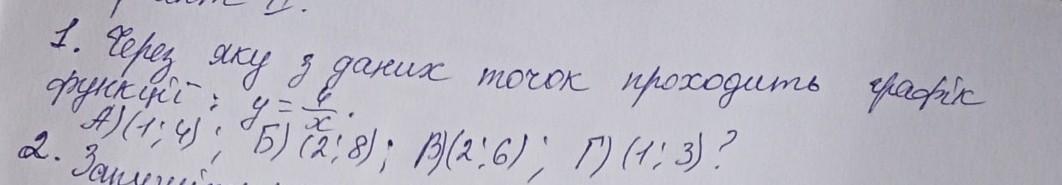 1. Через яку з даних точок проходить графік
функції: y = 4/x.
А) (1; 4); Б) (2; 8); В) (2; 6); Г) (1; 3)?
2.